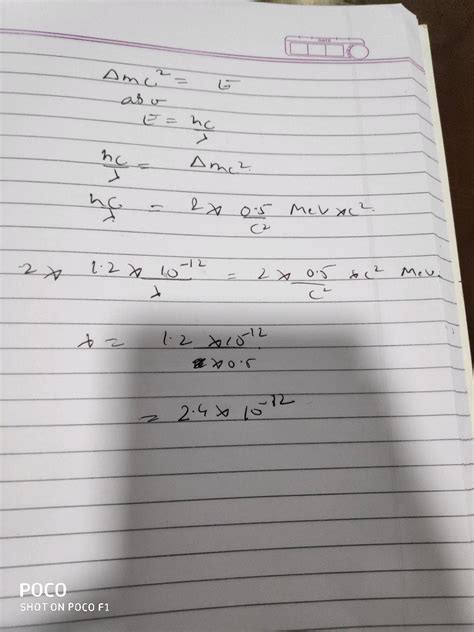 DATE
Δmc² = E
also
E = hc/λ
hc/λ = Δmc².
hc/λ = 2 × 0.5/c² MeV × c².
2 × 1.2 × 10⁻¹²/λ = 2 × 0.5/c² × c² MeV
λ = 1.2 × 10⁻¹²/×0.5
= 2.4 × 10⁻¹²
POCO
SHOT ON POCO F1